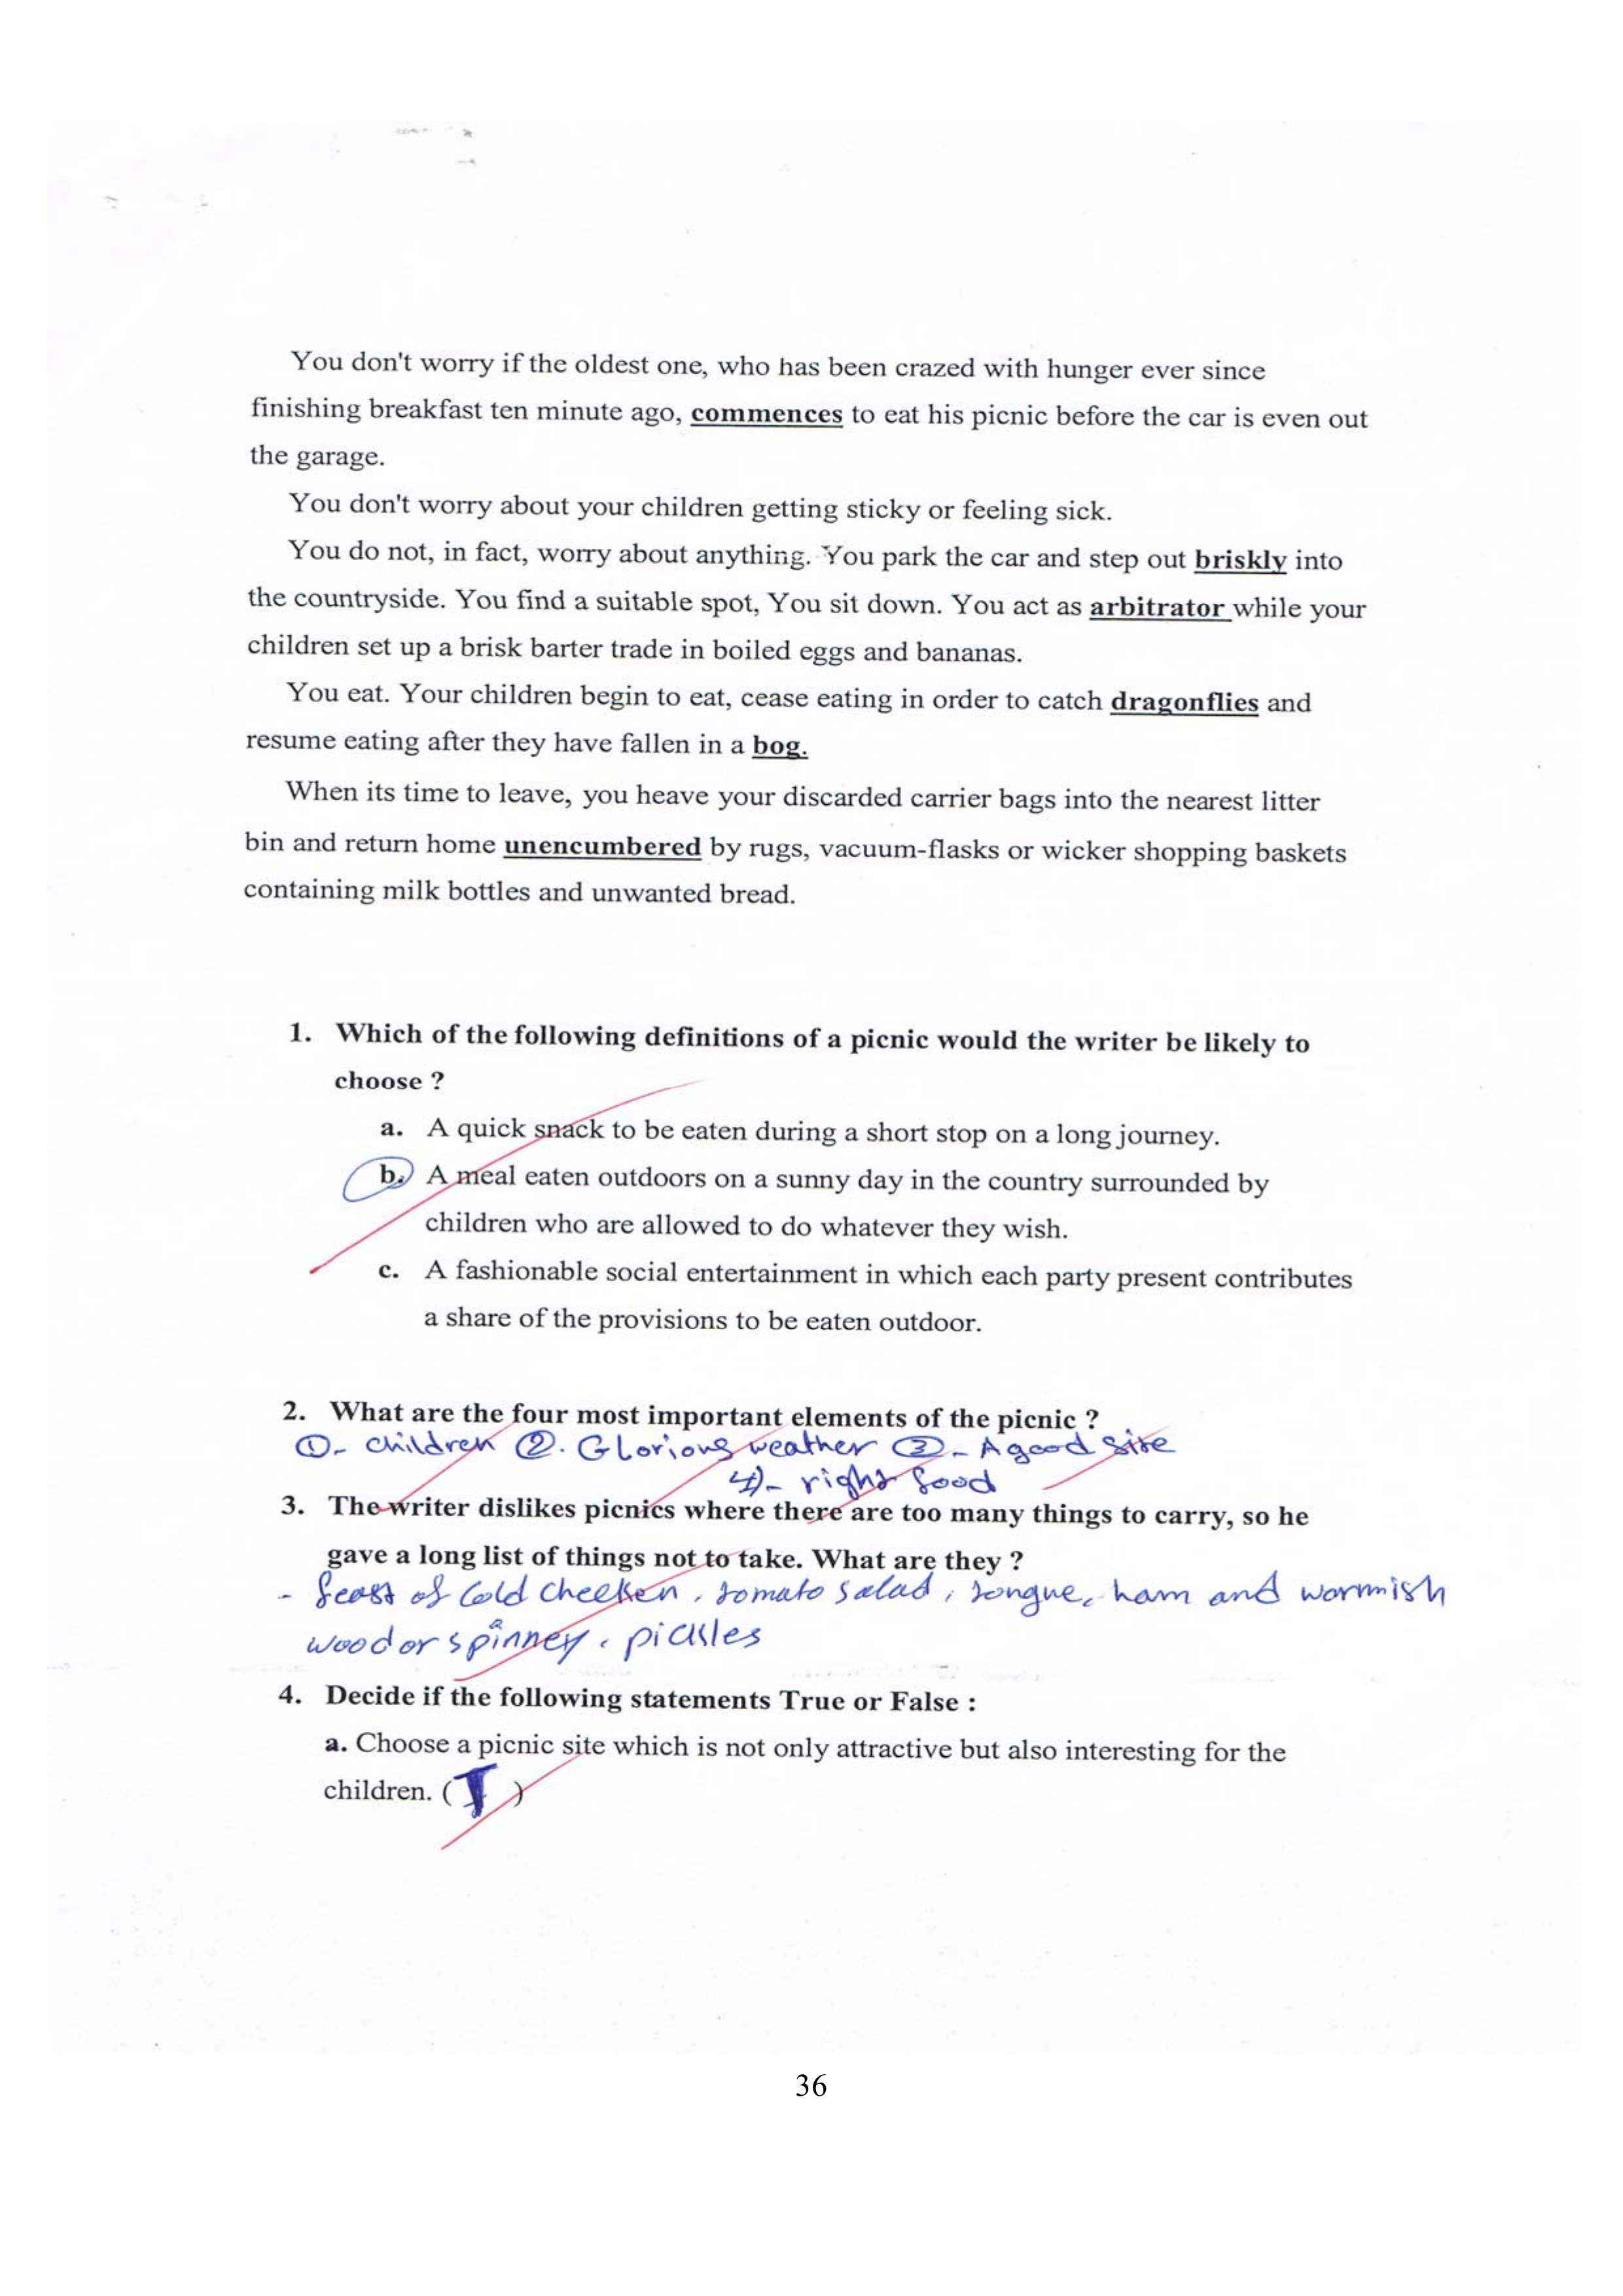 You don't worry if the oldest one, who has been crazed with hunger ever since
finishing breakfast ten minute ago, commences to eat his picnic before the car is even out
the garage.
You don't worry about your children getting sticky or feeling sick.
You do not, in fact, worry about anything. You park the car and step out briskly into
the countryside. You find a suitable spot, You sit down. You act as arbitrator while your
children set up a brisk barter trade in boiled eggs and bananas.
You eat. Your children begin to eat, cease eating in order to catch dragonflies and
resume eating after they have fallen in a bog.
When its time to leave, you heave your discarded carrier bags into the nearest litter
bin and return home unencumbered by rugs, vacuum-flasks or wicker shopping baskets
containing milk bottles and unwanted bread.
1. Which of the following definitions of a picnic would the writer be likely to
choose ?
a. A quick snack to be eaten during a short stop on a long journey.
b. A meal eaten outdoors on a sunny day in the country surrounded by
children who are allowed to do whatever they wish.
c. A fashionable social entertainment in which each party present contributes
a share of the provisions to be eaten outdoor.
2. What are the four most important elements of the picnic ?
①- children ②. Glorious weather ③- A good site
4)- right food
3. The writer dislikes picnics where there are too many things to carry, so he
gave a long list of things not to take. What are they ?
- feast of Cold cheeken, tomato salad, tongue, ham and warmish
wood or spinney, pickles
4. Decide if the following statements True or False :
a. Choose a picnic site which is not only attractive but also interesting for the
children. ( T )
36